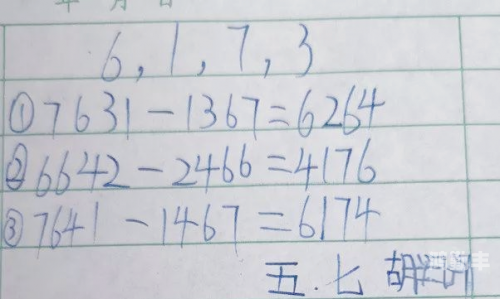 年 月 日
6,1,7,3
①7631-1367=6264
②6642-2466=4176
③7641-1467=6174
五.七 胡